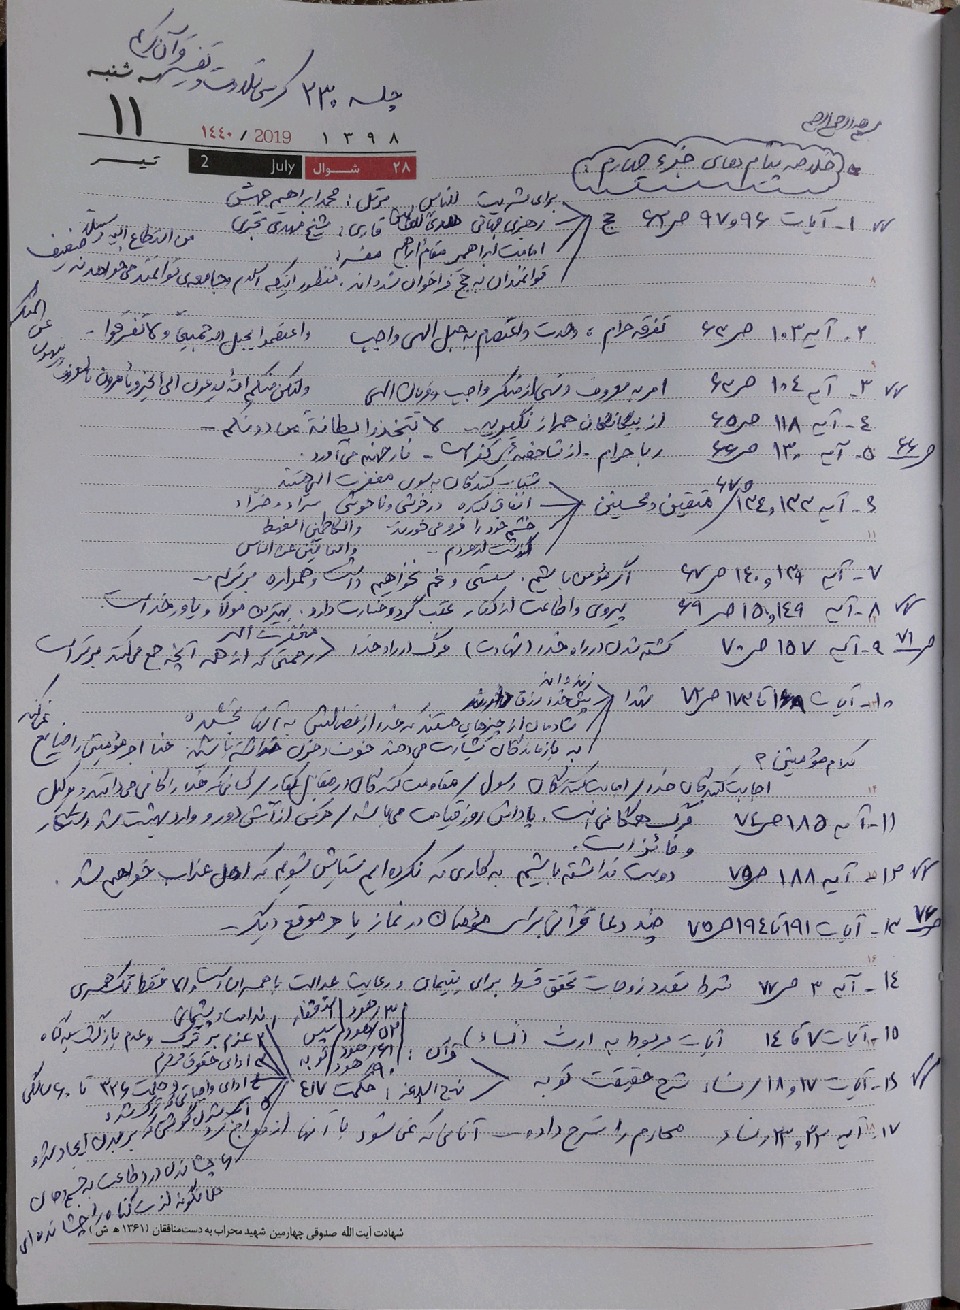 جلسه ۲۳۰ کرسی تلاوت و تفسیر قرآن کریم
سه شنبه
۱۱
۱۴۴۰ / 2019 ۱۳۹۸
تیر
2 July ۲۸ شوال
خلاصه پیام های جزء چهارم:
۱- آیات ۹۶ و ۹۷ ص ۶۲ حج
برای بشریت للناس مرتل: محمد ابراهیم
رهبری جهانی هدی للعالمین قاری: شیخ مهدی
امامت ابراهیم مقام ابراهیم مفسر:
من استطاع الیه سبیلا
توانمندان به حج فراخوان شده اند. منظور اینکه اسلام جامعه ی توانمند می خواهد نه ضعیف
۲- آیه ۱۰۳ ص ۶۳ تفرقه حرام، وحدت و اعتصام به حبل الهی واجب واعتصموا بحبل الله جمیعا و لا تفرقوا
۳- آیه ۱۰۴ ص ۶۳ امر به معروف و نهی از منکر واجب و فرمان الهی ولتکن منکم امة یدعون الی الخیر و یأمرون بالمعروف و ینهون عن المنکر
۴- آیه ۱۱۸ ص ۶۵ از بیگانگان همراز نگیرید - لا تتخذوا بطانة من دونکم -
۵- آیه ۱۳۰ ص ۶۶ ربا حرام - از شاخصه کفر است - بار جهنم می آورد. ص ۶۶
۶- آیه ۱۳۳ و ۱۳۴ ص ۶۷ متقین و محسنین
شتاب کنندگان به سوی مغفرت الهی و جنت
انفاق کننده در خوشی و ناخوشی سراء و ضراء
خشم خود را فرو می خورند والکاظمین الغیظ
گذشت از مردم - والعافین عن الناس
۷- آیه ۱۳۹ و ۱۴۰ ص ۶۷ اگر مؤمن باشیم. سستی و غم نخواهیم داشت و همواره برتریم -
۸- آیه ۱۴۹ و ۱۵۰ ص ۶۹ پیروی و اطاعت از کفار عقب گرد و خسارت دارد. بهترین مولا و یاور خداست.
۹- آیه ۱۵۷ ص ۷۰ کشته شدن در راه خدا (شهادت) مرگ در راه خدا (مغفرت الهی رحمتی که از همه آنچه جمع میکنند برتر است ص ۷۱
۱۰- آیات ۱۶۹ تا ۱۷۳ ص ۷۲ شهدا
زنده اند
پیش خدا رزق میخورند
شادمان از چیزهایی هستند که خدا از فضلش به آنها بخشیده
به بازماندگان بشارت می دهند خوف و حزن نداشته باشید. خدا اجر مؤمنین را ضایع نمی کند
کدام مؤمنین؟
اجابت کنندگان خدا / اجابت کنندگان رسول / مقاومت کنندگان در مقابل کفار / کسانی که خدا را کافی می دانند و توکل
۱۱- آیه ۱۸۵ ص ۷۴ مرگ همگانی است. پاداش روز قیامت می باشد / هرکس از آتش دور و وارد بهشت شد رستگار
و فائز است.
۱۲- آیه ۱۸۸ ص ۷۵ دوست نداشته باشیم به کاری که نکرده ایم ستایش شویم که اهل عذاب خواهیم شد.
۱۳- آیات ۱۹۱ تا ۱۹۴ ص ۷۵ چند دعا قرآنی برای مؤمنان در نماز یا هر موقع دیگر - ص ۷۶
۱۴- آیه ۳ ص ۷۷ شرط تعدد زوجات تحقق قسط برای یتیمان و رعایت عدالت با همسران است والا فقط تک همسری
۱۵- آیات ۷ تا ۱۴ آیات مربوط به ارث (نساء)
۱۶- آیات ۱۷ و ۱۸ / نساء شرح حقیقت توبه
قرآن: ۳ / هود ۵۲ / هود ۶۱ / هود ۹۰ / هود استغفار سپس توبه
نهج البلاغه: حکمت ۴۱۷
ندامت و پشیمانی
۲ عزم بر ترک و عدم بازگشت به گناه
۳ ادای حقوق مردم
۴ ادای واجباتی که ترک شده
۶ چشاندن درد طاعت به جسم همان
همانگونه لذت گناه را چشانده ای
۱۷- آیه ۲۲ و ۲۳ / نساء محارم را شرح داده - آنانی که نمی شود با آنها ازدواج کرد
شهادت آیت الله صدوقی چهارمین شهید محراب به دست منافقان (۱۳۶۱ ه‍ ش)